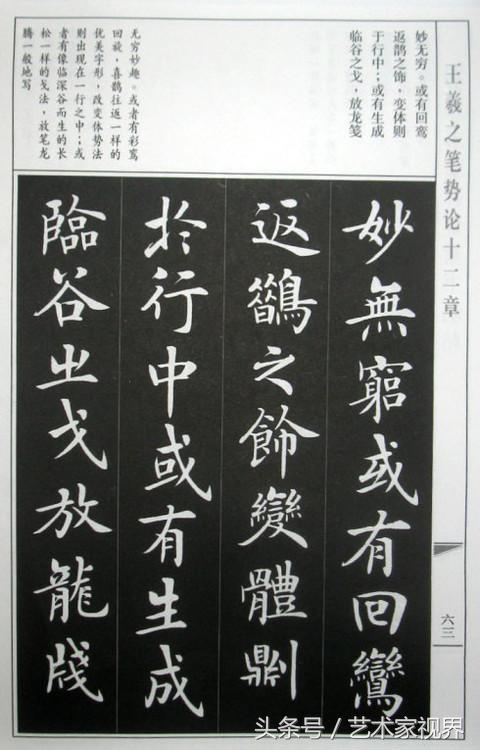 王羲之笔势论十二章
六三
妙无穷。或有回鸾
返鹊之饰，变体则
于行中；或有生成
临谷之戈，放龙笺
无穷妙趣。或者有彩鸾
回旋，喜鹊往返一样的
优美字形，改变体势法
则出现在一行之中；或
者有像临深谷而生的长
松一样的戈法，放笔龙
腾一般地写
妙無窮或有回鸞
返鵲之飾變體則
於行中或有生成
臨谷之戈放龍牋
头条号／艺术家视界